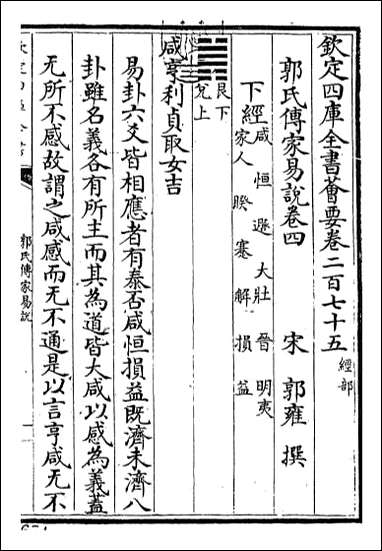 欽定四庫全書薈要卷二百七十五 經部
郭氏傳家易說卷四 宋 郭雍 撰
下經 咸 恒 遯 大壯 晉 明夷
家人 睽 蹇 解 損 益
艮下
兌上
咸亨利貞取女吉
易卦六爻皆相應者有泰否咸恒損益既濟未濟八
卦雖名義各有所主而其為道皆大咸以感為義蓋
无所不感故謂之咸感而无不通是以言亨咸无不
郭氏傳家易說